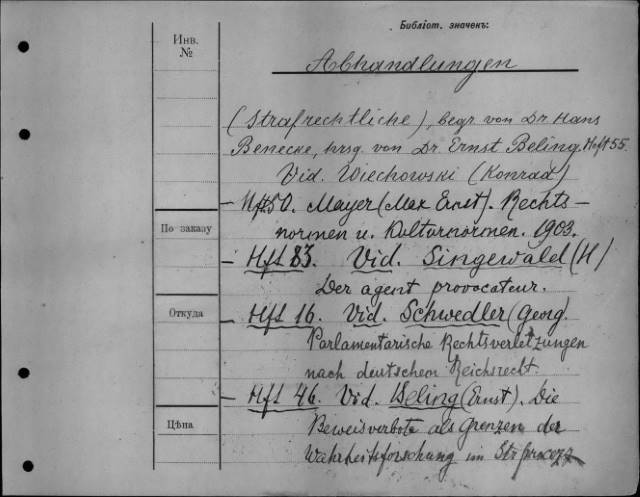 Библіот. значенъ:
Инв.
№
Abhandlungen
(Strafrechtliche), begr. von Dr Hans
Benecke, hrsg. von Dr. Ernst Beling. Heft 55.
Vid. Wiechowski (Konrad)
– Hft 50. Mayer (Max Ernst). Rechts-
normen u. Kulturnormen. 1903.
По заказу
– Hft 83. Vid. Singewald (H)
Der agent provocateur.
Откуда
– Hft 16. Vid. Schwedler (Georg).
Parlamentarische Rechtsverletzungen
nach deutschem Reichsrecht.
– Hft 46. Vid. Beling (Ernst). Die
Цѣна
Beweisverbote als Grenzen der
Wahrheitsforschung im Strfprozess